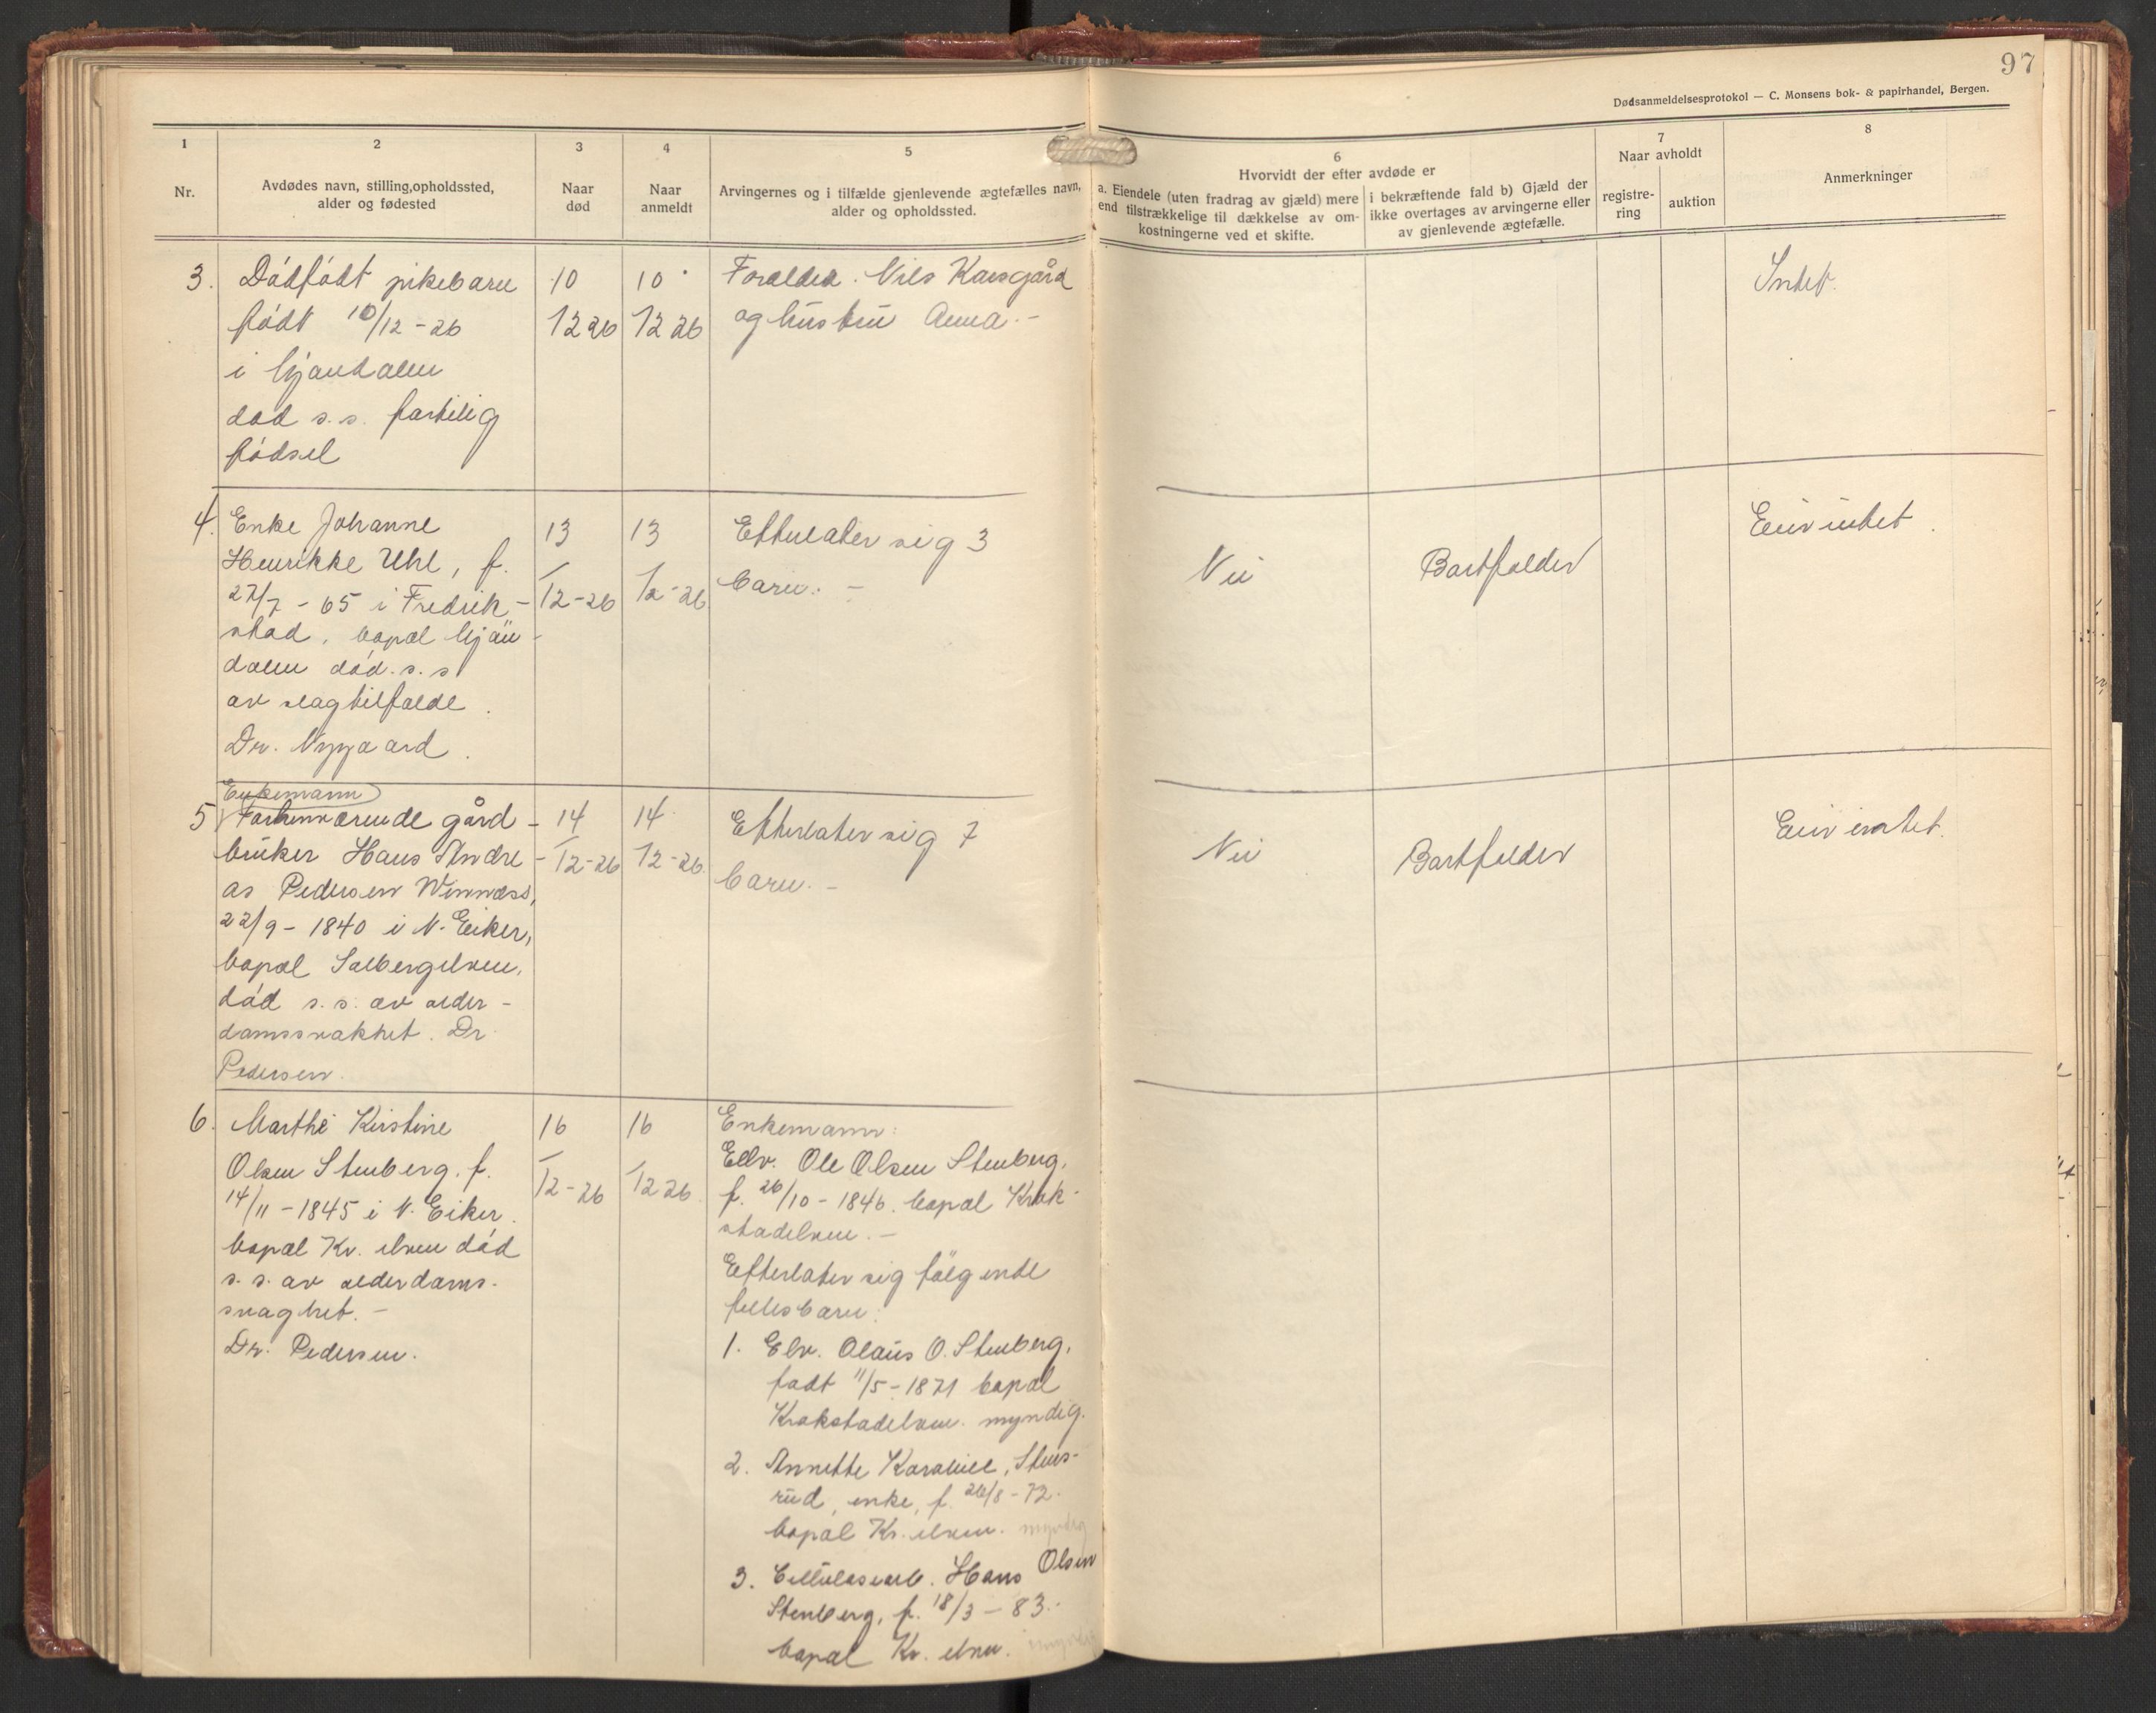 97
Dødsanmeldelsesprotokol — C. Monsens bok- & papirhandel, Bergen.
1
Nr.
2
Avdødes navn, stilling, opholdssted,
alder og fødested
3
Naar
død
4
Naar
anmeldt
5
Arvingernes og i tilfælde gjenlevende ægtefælles navn,
alder og opholdssted.
6
Hvorvidt der efter avdøde er
a. Eiendele (uten fradrag av gjæld) mere
end tilstrækkelige til dækkelse av om-
kostningerne ved et skifte.
i bekræftende fald b) Gjæld der
ikke overtages av arvingerne eller
av gjenlevende ægtefælle.
7
Naar avholdt
registre-
ring
auktion
8
Anmerkninger
3.
Dødfødt pikebarn
født 10/12-26
i Mjøndalen
død s.s. fortidlig
fødsel
10
12 26
10
12 26
Foreldre. Nils
og hustru Anna.-
Intet.
4.
Enke Johanne
Henrikke Uhl, f.
27/7-65 i Fredrik-
stad, bopæl Mjøn-
dalen død. s.s
av slagtilfælde.
Dr. Nygaard.
13
/12-26
13
/12-26
Efterlater sig 3
barn.-
Nei
Bortfalder
Eier intet.
5
Enkemann
Forhenværende gård-
bruker Hans Andre-
as Pedersen Winnæss,
22/9-1840 i N. Eiker,
bopæl Solbergelven,
død s.s. av alder-
domssvakhet. Dr.
Pedersen.
14
/12-26
14
12-26
Efterlater sig 7
barn.-
Nei
Bortfalder
Eier intet.
6.
Marthe Kirstine
Olsen Stenberg. f.
14/11-1845 i N. Eiker.
bopæl Kr. elven død
s.s. av alderdoms-
svaghet.-
Dr. Pedersen.
16
/12-26
16
/12 26.
Enkemann:
Ole Olsen Stenberg,
f. 26/10-1846. bopæl Krok-
stadelven.-
Efterlater sig følgende
fellesbarn:
1. Olaus O. Stenberg,
født 11/5-1871 bopæl
Krokstadelven. myndig.
2. Annette Karoline, Stens-
rud, enke, f. 26/8-72.
bopæl Kr. elven. myndig
3. Cellulosearb. Hans Olsen
Stenberg, f. 18/3-83.-
bopæl Kr. elven. myndig